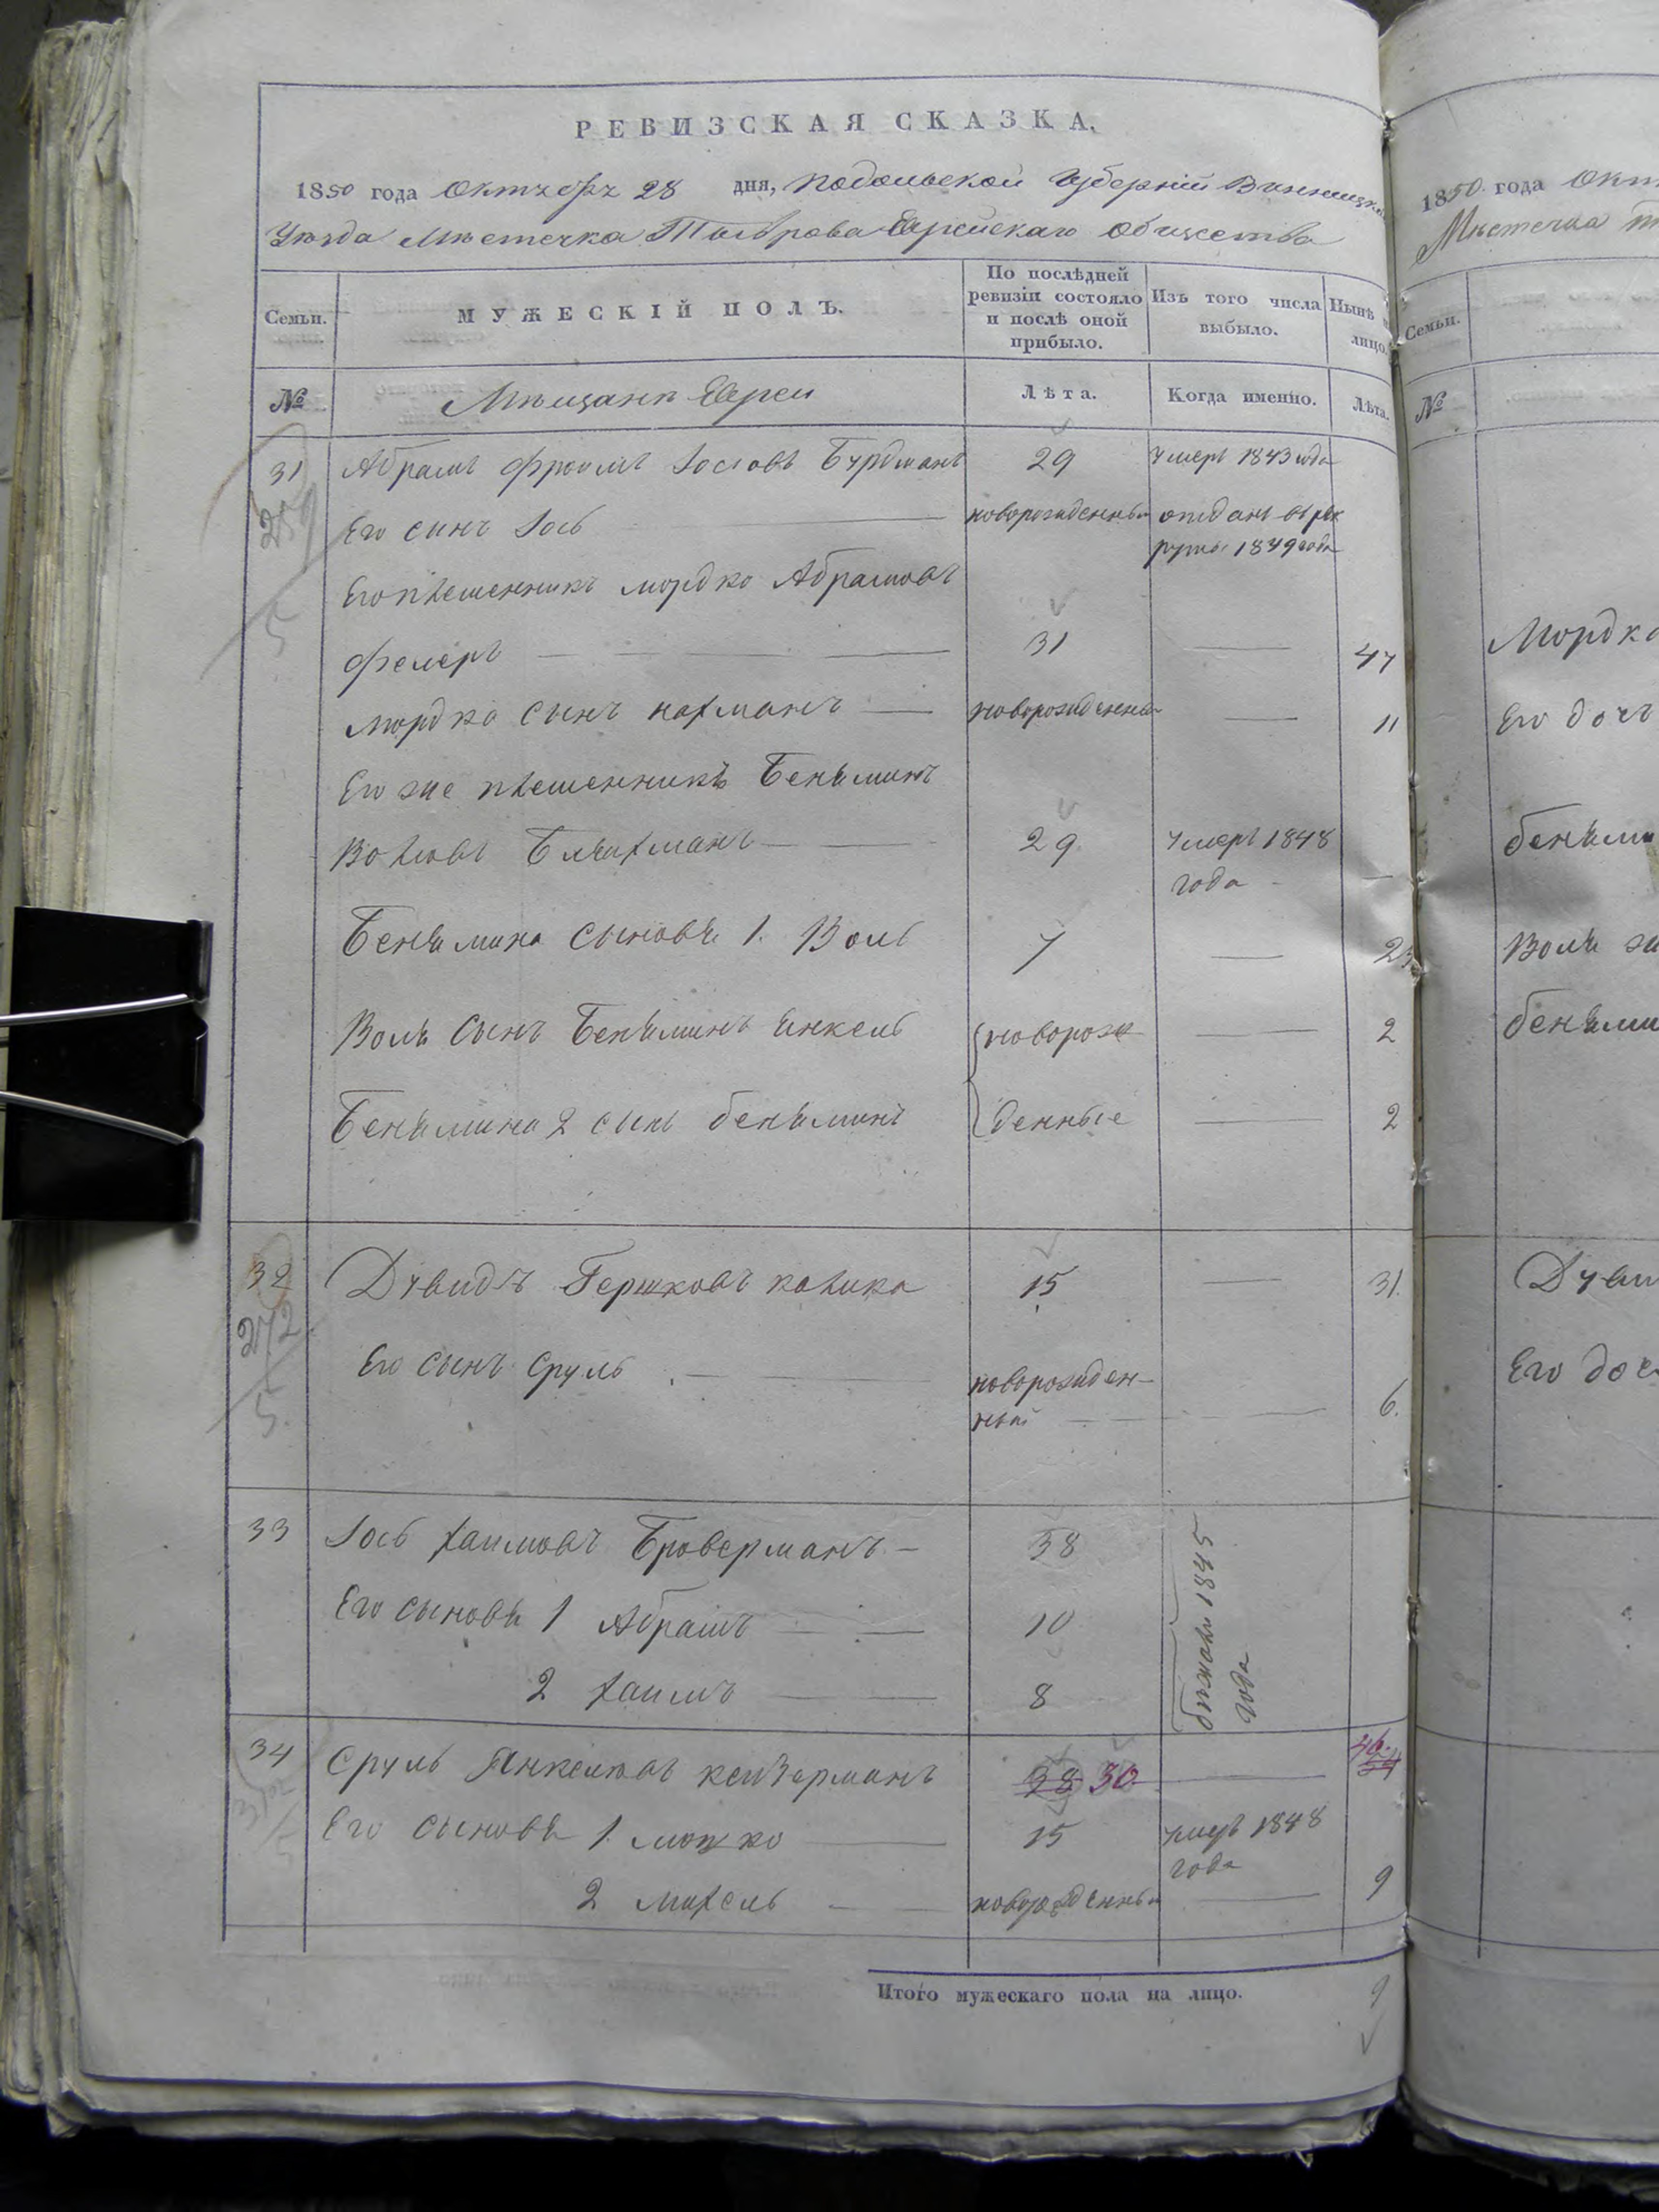 РЕВИЗСКАЯ СКАЗКА.
1850 года Октября 28 дня, Подольской Губерніи Винницка
Уѣзда Мѣстечка Тыврова Еврейскаго Общества
Семьи. МУЖЕСКІЙ ПОЛЪ. По послѣдней ревизіи состояло и послѣ оной прибыло. Изъ того числа выбыло. Нынѣ на лицо.
№ Мѣщанѣ Евреи Лѣта. Когда именно. Лѣта.
31 Абрамъ Фроимъ Іосіовъ Бурдманъ 29 Умеръ 1843 года
Его синъ Іось новорожденный отданъ въ рек
руты 1849 года
Его племенникъ Мордко Абрамовъ
Фелеръ 31 47
Мордка сынъ Нахманъ новорожденный 11
Его же племенникъ Беньяминъ
Волковъ Блехманъ 29 Умеръ 1848
года
Беньямина сыновья 1. Воль 7 23
Воля сынъ Беньяминъ Янкель новорож 2
Беньямина 2 сынъ беньяминъ денные 2
259
5
32 Дувидъ Гершковъ Калика 15 31.
272
5.
Его сынъ Сруль новорожден-
ный 6.
33 Іось Хаимовъ Броверманъ 38
Его сыновья 1 Абрамъ 10
2 Хаимъ 8
бѣжали 1845
года
34 Сруль Янкелювъ Кейзерманъ 38 30 46.
Его сыновья 1. Мошко 15 умеръ 1848
года
2 Михель новорожденный 9
Итого мужескаго пола на лицо. 9
1850 года Окт
Мѣстечка Т
Семьи.
№
Мордка
Его дочь
беньями
Воля же
беньями
Дуви
Его доч